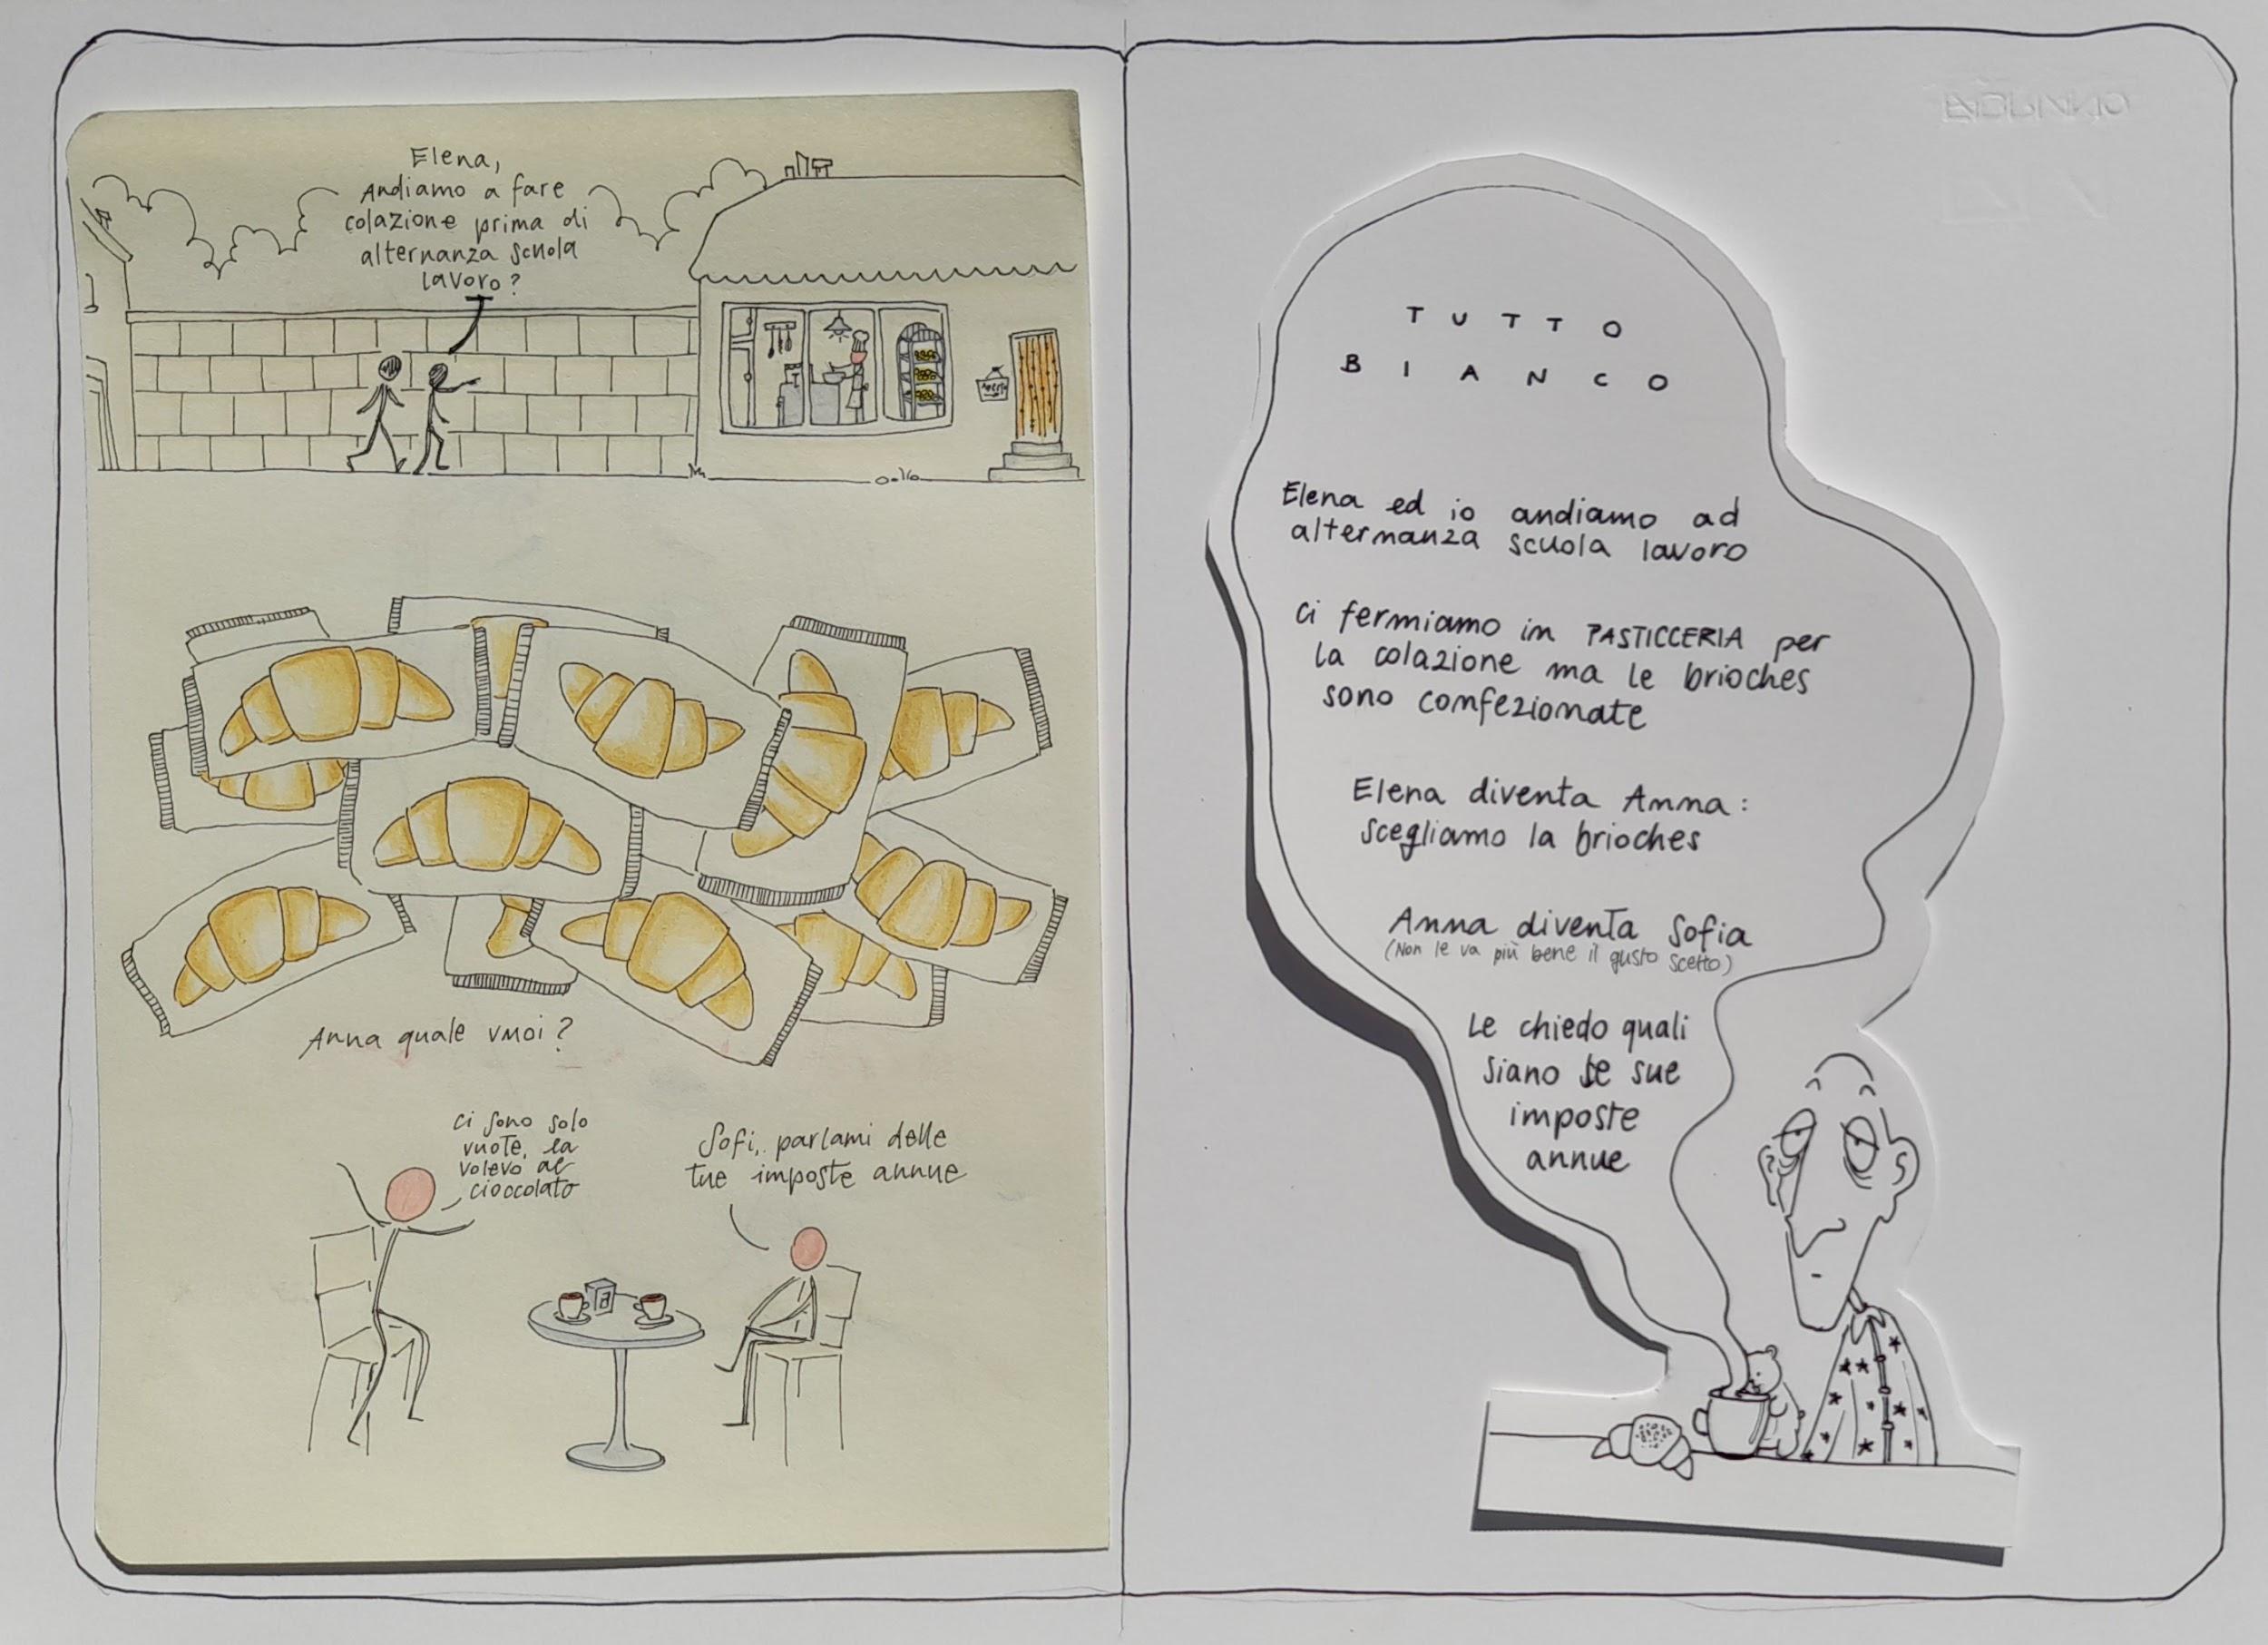 Elena,
Andiamo a fare
colazione prima di
alternanza scuola
lavoro?
Aperto
Anna quale vuoi?
ci sono solo
vuote, la
volevo al
cioccolato
Sofi, parlami delle
tue imposte annue
FABRIANO
TUTTO
BIANCO
Elena ed io andiamo ad
alternanza scuola lavoro
ci fermiamo in PASTICCERIA per
la colazione ma le brioches
sono confezionate
Elena diventa Anna:
scegliamo la brioches
Anna diventa Sofia
(Non le va più bene il gusto scelto)
Le chiedo quali
siano le sue
imposte
annue